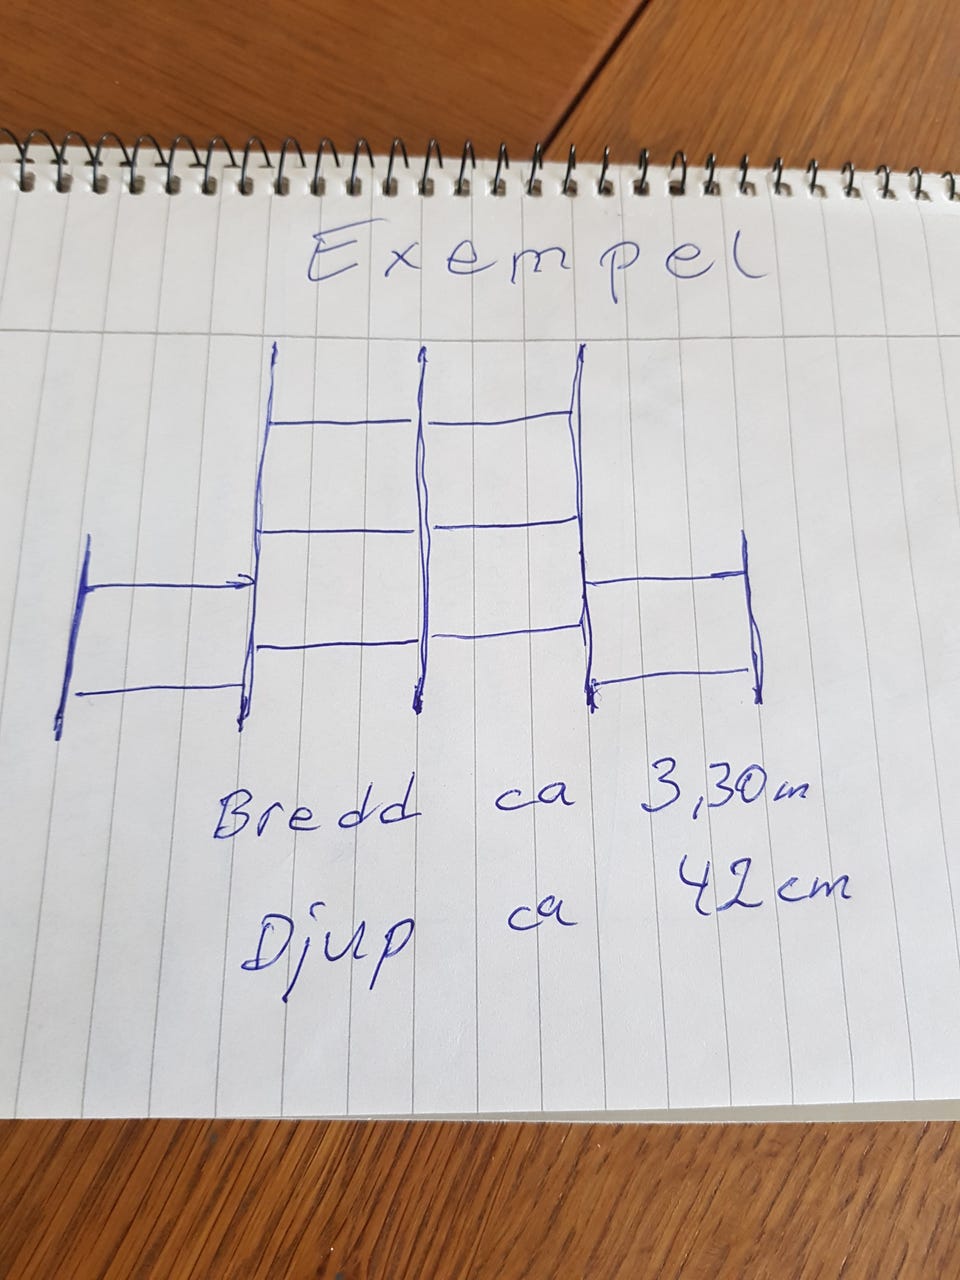 Exempel
Bredd ca 3,30m
Djup ca 42cm